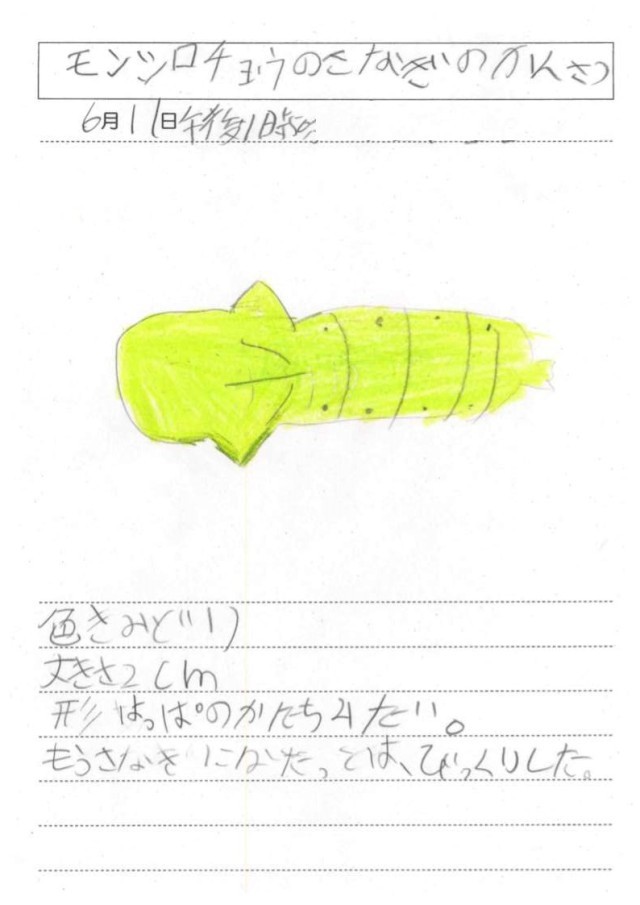 モンシロチョウのさなぎのかんさつ
6月11日午後1時
色きみどり
大きさ2cm
形はっぱのかたちみたい。
もうさなぎになたっとは、びっくりした。